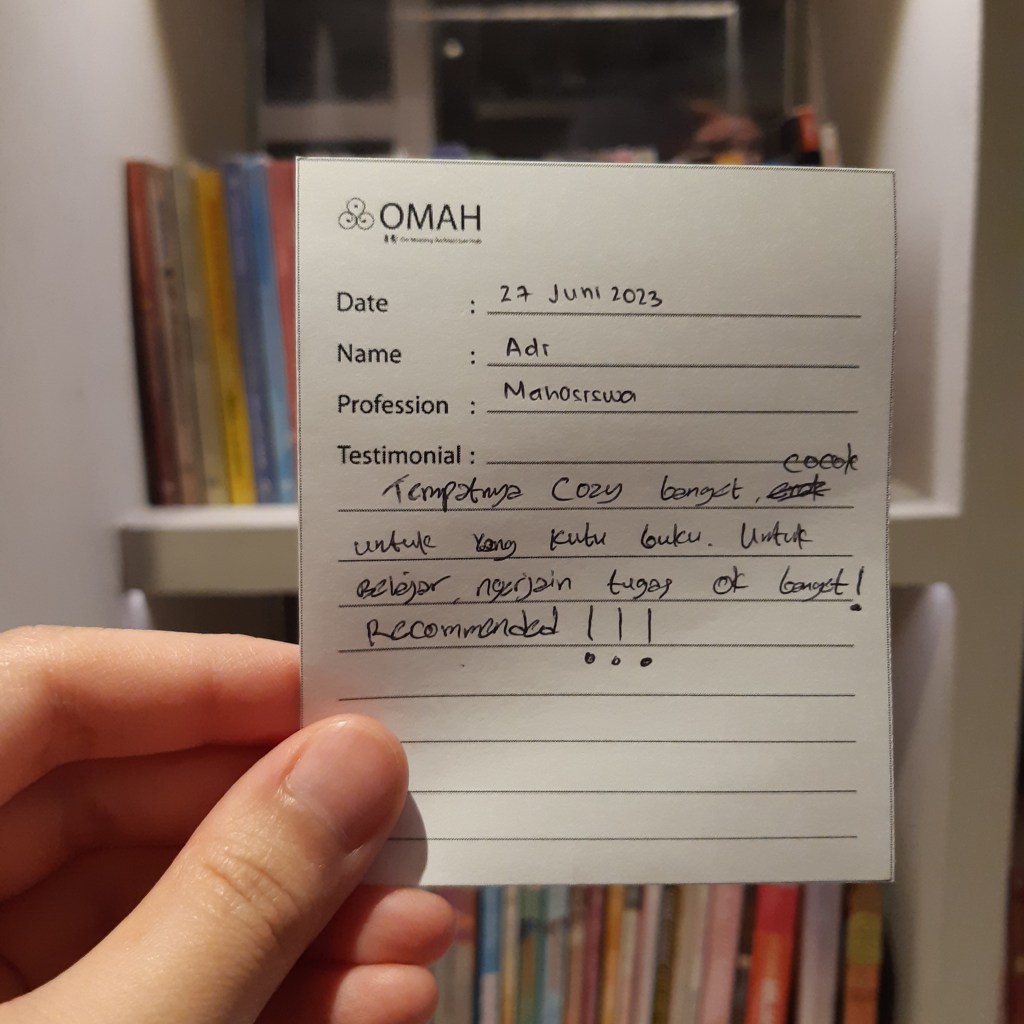 OMAH
Date : 27 Juni 2023
Name : Adi
Profession : Mahasiswa
Testimonial :
cocok
Tempatnya Cozy banget,
untuk yang kutu buku. Untuk
Belajar, ngerjain tugas ok banget!
Recommended !!!